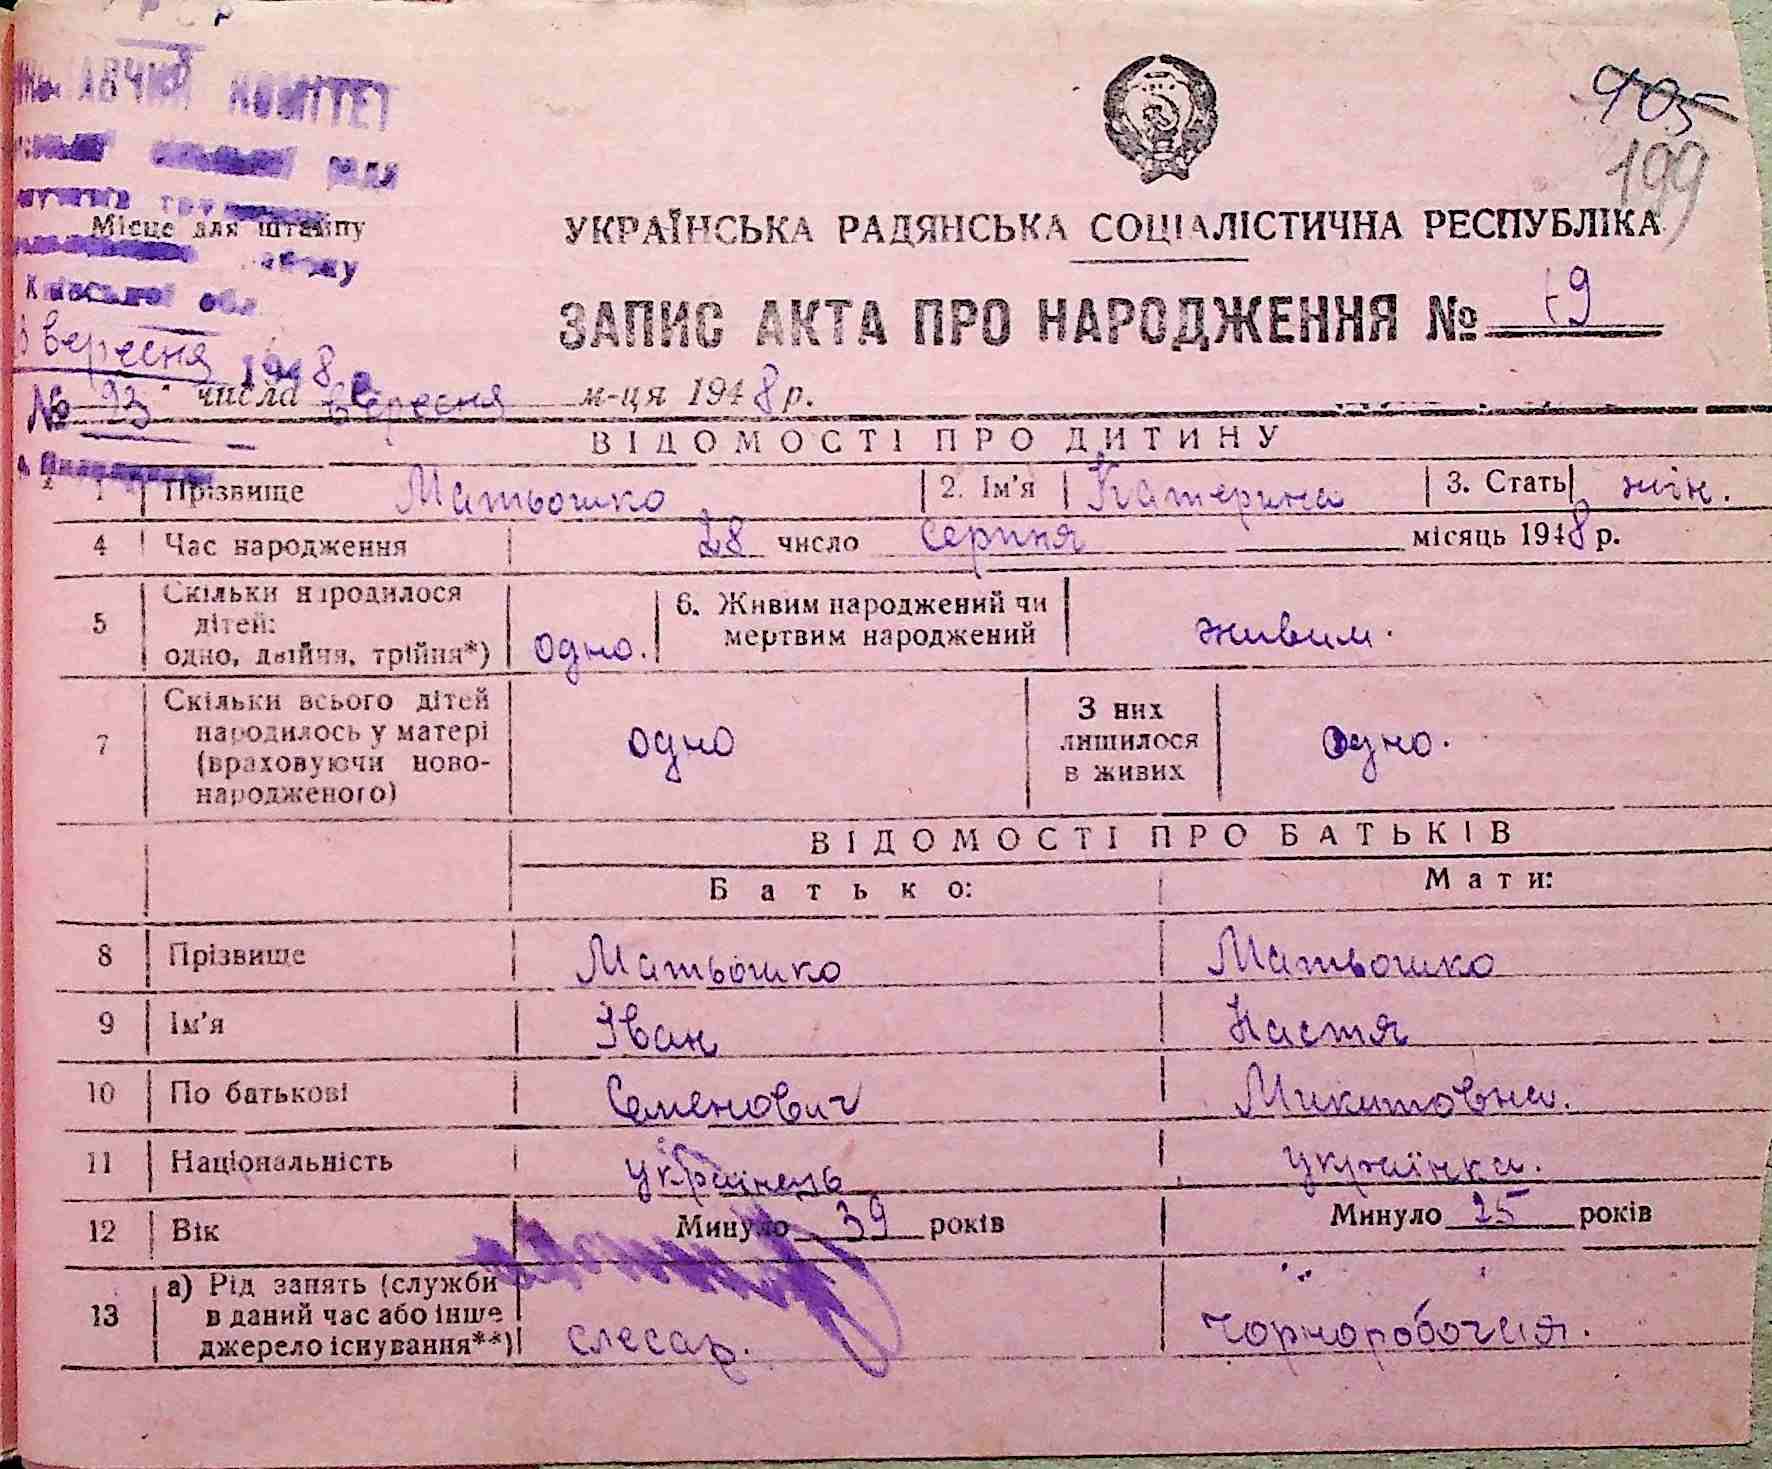 КОМІТЕТ
405
199
Місце для штампу
УКРАЇНСЬКА РАДЯНСЬКА СОЦІАЛІСТИЧНА РЕСПУБЛІКА
Київської обл.
ЗАПИС АКТА ПРО НАРОДЖЕННЯ №
вересня 1948
№ 93 числа вересня м-ця 1948 р.
ВІДОМОСТІ ПРО ДИТИНУ
1 Прізвище Матьошко 2. Ім'я Катерина 3. Стать жін.
4 Час народження 28 число серпня місяць 1948 р.
5 Скільки народилося дітей: одно, двійня, трійня*) одно. 6. Живим народжений чи мертвим народжений живим.
7 Скільки всього дітей народилось у матері (враховуючи новонародженого) одно З них лишилося в живих одно.
ВІДОМОСТІ ПРО БАТЬКІВ
Батько: Мати:
8 Прізвище Матьошко Матьошко
9 Ім'я Іван Настя
10 По батькові Семенович Микитовна.
11 Національність українець українка.
12 Вік Минуло 39 років Минуло 25 років
13 а) Рід занять (служби в даний час або інше джерело існування**) слесар. чорноробочая.